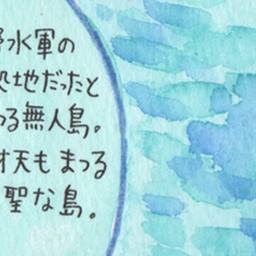 水軍の
地だったと
る無人島。
天もまつる
聖な島。